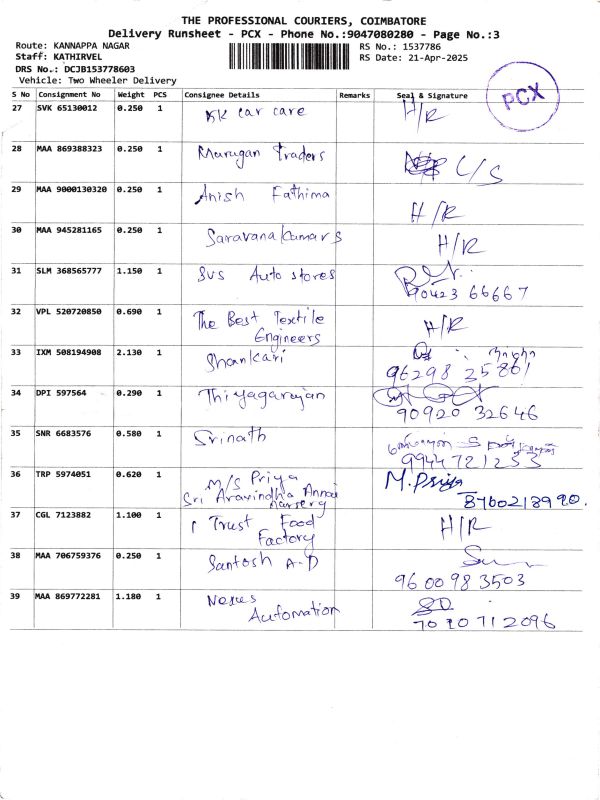 THE PROFESSIONAL COURIERS, COIMBATORE
Delivery Runsheet - PCX - Phone No.:9047080280 - Page No.:3
Route: KANNAPPA NAGAR
RS No.: 1537786
Staff: KATHIRVEL
RS Date: 21-Apr-2025
DRS No.: DCJB153778603
Vehicle: Two Wheeler Delivery
PCX
S No Consignment No Weight PCS Consignee Details Remarks Seal & Signature
27 SVK 65130012 0.250 1 KK car care H/R
28 MAA 869388323 0.250 1 Murugan Traders C/S
29 MAA 9000130320 0.250 1 Anish Fathima H/R
30 MAA 945281165 0.250 1 Saravanakumar S H/R
31 SLM 368565777 1.150 1 SVS Auto stores
90423 66667
32 VPL 520720850 0.690 1 The Best Textile H/R
Engineers
33 IXM 508194908 2.130 1 Shankari
96298 35801
34 DPI 597564 0.290 1 Thiyagarajan
90920 32646
35 SNR 6683576 0.580 1 Srinath
9944721253
36 TRP 5974051 0.620 1 M/S Priya M.Priya
Sri Aravindha Annai 8760218990.
Nursery
37 CGL 7123882 1.100 1 Trust Food H/R
Factory
38 MAA 706759376 0.250 1 Santosh A.D
96 00 98 3503
39 MAA 869772281 1.180 1 Nexus
Automation 70 10 71 2096